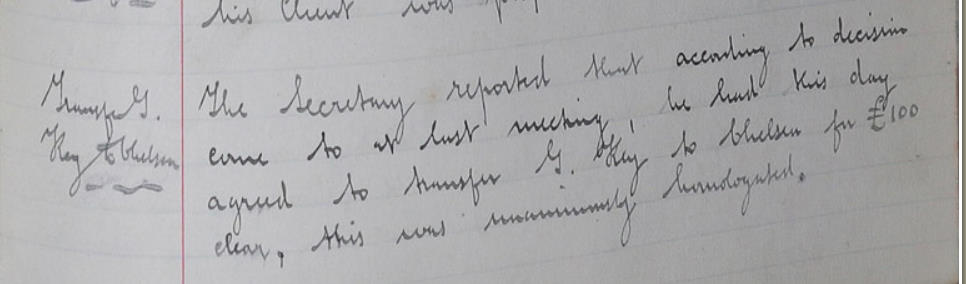 his Client was
Transfer G.
Key to Chelsea
The Secretary reported that according to decision
come to at last meeting, he had this day
agreed to transfer G. Key to Chelsea for £100
clear, this was unanimously homologated.